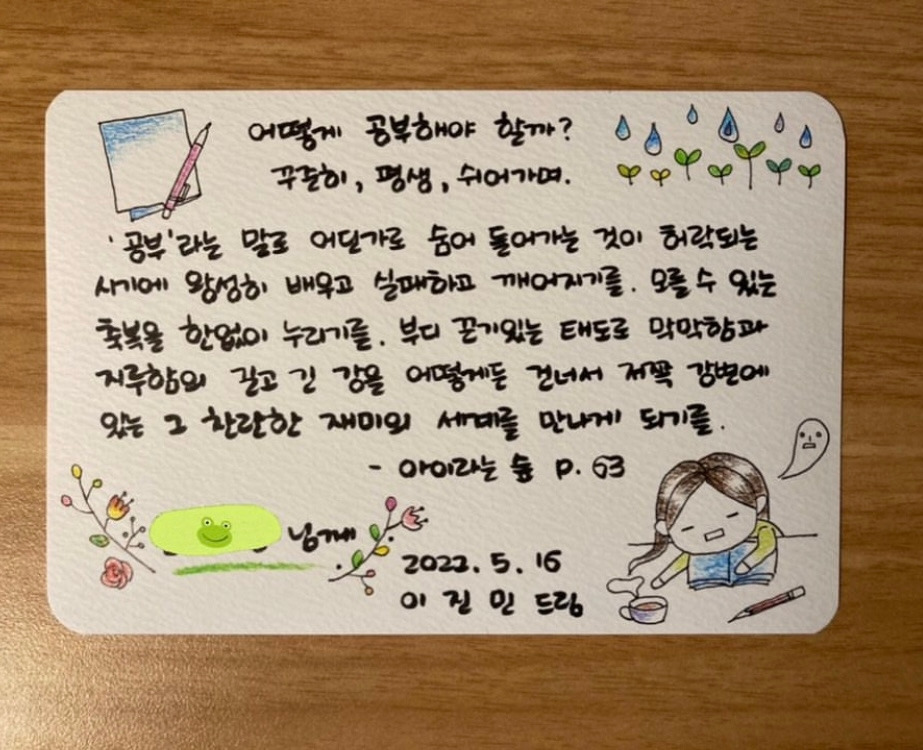 어떻게 공부해야 할까?
꾸준히, 평생, 쉬어가며.
'공부'라는 말로 어딘가로 숨어 들어가는 것이 허락되는
시기에 왕성히 배우고 실패하고 깨어지기를. 모를 수 있는
축복을 한없이 누리기를. 부디 끈기있는 태도로 막막함과
지루함의 길고 긴 강을 어떻게든 건너서 저쪽 강변에
있는 그 찬란한 재미의 세계를 만나게 되기를.
- 아이라는 숲 p. 63
님께
2022. 5. 16
이 진 민 드림